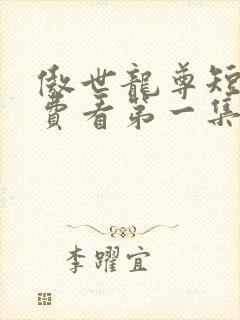 傲世龍尊短
費看第一集
李躍宜